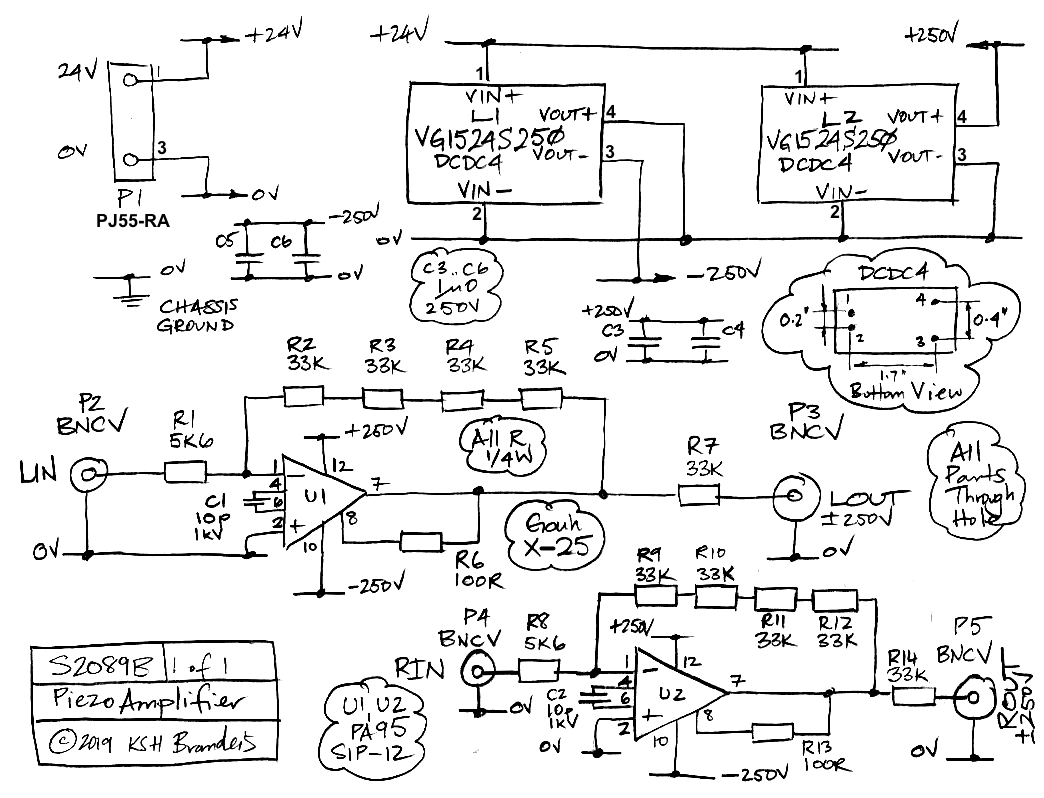 +24V
24V
1
0V
3
P1
PJ55-RA
0V
+24V
+250V
1
VIN+
L1
VG1524S250
DCDC4
VOUT+
4
VOUT-
3
VIN-
2
0V
1
VIN+
L2
VG1524S250
DCDC4
VOUT+
4
VOUT-
3
VIN-
2
-250V
C5
C6
-250V
0V
0V
CHASSIS
GROUND
C3..C6
1n0
250V
+250V
C3
C4
0V
DCDC4
1
4
0.2"
0.4"
2
3
1.7"
Bottom View
R2
33K
R3
33K
R4
33K
R5
33K
P2
BNCV
R1
5K6
+250V
All R
1/4W
R7
33K
P3
BNCV
All
Parts
Through
Hole
LIN
1
-
12
4
6
U1
7
C1
10p
1kV
2
+
8
10
LOUT
±250V
0V
Gain
X-25
R6
100R
0V
-250V
R9
33K
R10
33K
R11
33K
R12
33K
P4
BNCV
R8
5K6
+250V
P5
BNCV
RIN
1
-
12
4
6
U2
7
C2
10p
1kV
2
+
8
10
R14
33K
ROUT
±250V
0V
0V
R13
100R
0V
-250V
S2089B
1 of 1
Piezo Amplifier
© 2019 KSH Brandeis
U1, U2
PA95
SIP-12